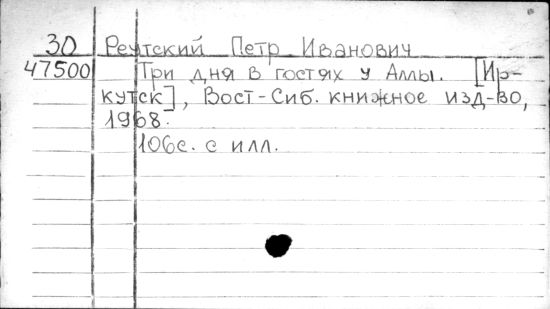 30 Реутский Петр Иванович
47500 Три дня в гостях у Аллы. [Ир-
кутск], Вост-Сиб. книжное изд-во,
1968.
106с. с илл.